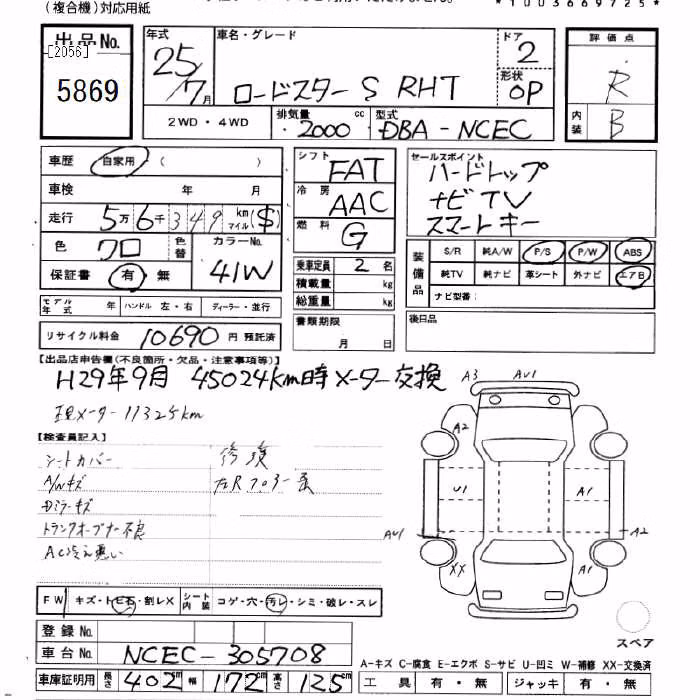 (複合機)対応用紙
*1003669725*
出品No.
[2056]
5869
年式
25/7月
車名・グレード
ロードスター S RHT
ドア
2
形状
OP
評価点
R
内装
B
2WD・4WD
排気量
2000
cc
型式
DBA-NCEC
車歴
自家用 ( )
車検
年 月
走行
5万6千349
km
マイル
($)
色
クロ
色替
カラーNo.
41W
保証書
有・無
モデル年式
年
ハンドル 左・右
ディーラー・並行
リサイクル料金
10690
円 預託済
シフト
FAT
冷房
AAC
燃料
G
乗車定員
2
名
積載量
kg
総重量
kg
書類期限
月 日
セールスポイント
ハードトップ
ナビTV
スマートキー
装備品
S/R
純A/W
P/S
P/W
ABS
純TV
純ナビ
革シート
外ナビ
エアB
ナビ型番:
後日品
【出品店申告欄(不良箇所・欠品・注意事項等)】
H29年9月 45024km時メーター交換
現メーター11325km
【検査員記入】
シートカバー
A/Wキズ
ミラーキズ
トランクオープナー不良
AC冷え悪い
修復
左Rフロアー
A3
AU1
A2
U1
A1
AU1
A2
XX
A1
スペア
FW
キズ・トビ石・割レX
シート内装
コゲ・穴・汚レ・シミ・破レ・スレ
登録No.
車台No.
NCEC-305708
車庫証明用
長さ
402
m
幅
172
m
高さ
125
m
A-キズ C-腐食 E-エクボ S-サビ U-凹ミ W-補修 XX-交換済
工具
有・無
ジャッキ
有・無